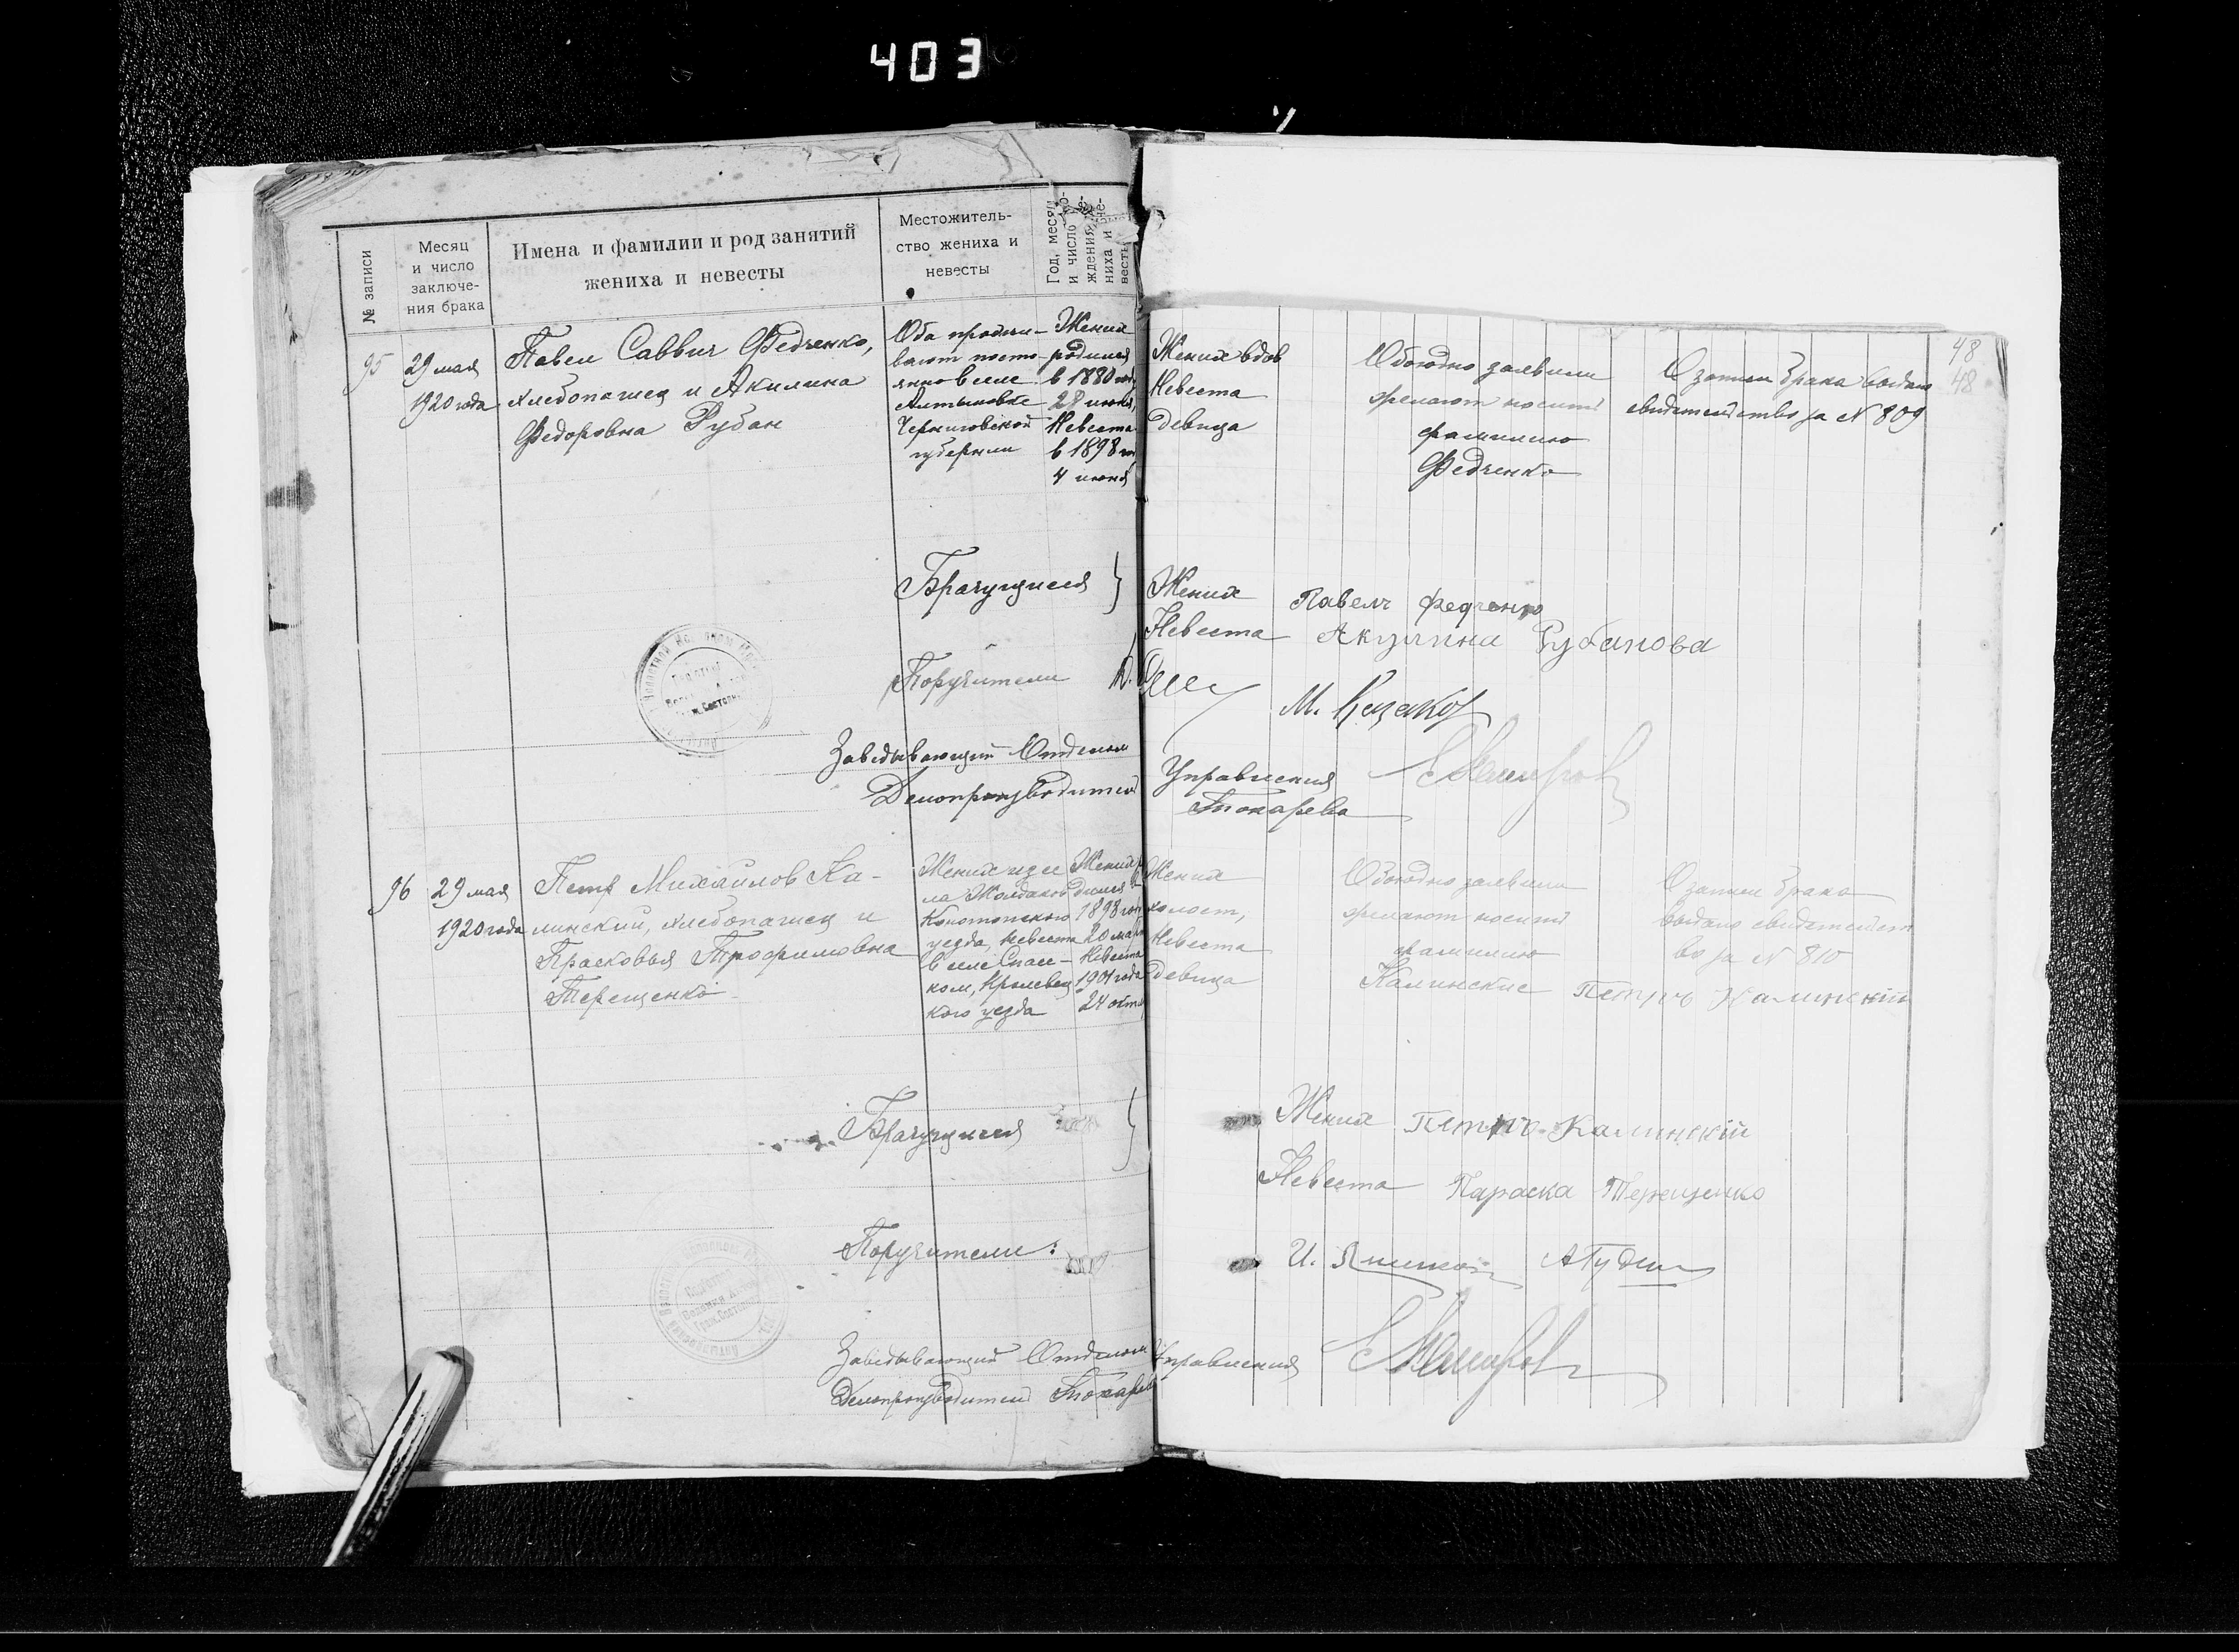 403
№ записи
Месяц
и число
заключе-
ния брака
Имена и фамилии и род занятий
жениха и невесты
Местожитель-
ство жениха и
невесты
Год, месяц
и число ро-
ждения же-
ниха и не-
весты
48
48
95
29 мая
1920 года
Павел Саввич Федченко,
хлебопашец и Акилина
Федоровна Рубан
Оба прожи-
вают посто-
янно в селе
Алтыновке
Черниговской
губернии
Жених
родился
в 1880 году
28 июня,
Невеста
в 1898
4 июня
Жених вдов
Невеста
девица
Обоюдно заявили
желают носить
фамилию
Федченко
О записи брака выдано
свидетельство за № 809
Брачущиеся }
Жених Павелъ Федченко
Невеста Акулина Рубанова
Поручители
М. Казаков
Заведывающий Отделом Управления
Делопроизводитель Токарева
96
29 мая
1920 года
Петр Михайлов Ка-
линский, хлебопашец и
Прасковья Трофимовна
Терещенко
Жених из се
ла Жолдаков
Конотопского
уезда, невеста
в селе Спасс-
ком, Кролевец
кого уезда
Жених
1898
20
Невеста
1901 года
24 окт
Жених
холост,
Невеста
девица
Обоюдно заявили
желают носить
фамилию
Калинские
О записи брака
выдано свидетельст
во за № 810
Петръ Калинскій
Брачущиеся }
Жених Петръ Калинскій
Невеста Параска Терещенко
Поручители:
И.
Заведывающий Отделом Управления
Делопроизводитель Токарева